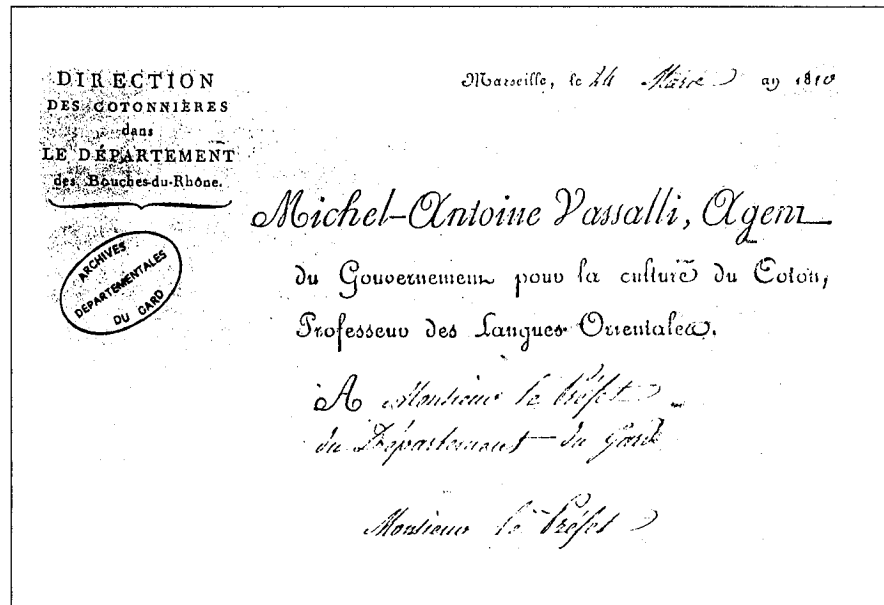 DIRECTION
DES COTONNIÈRES
dans
LE DÉPARTEMENT
des Bouches-du-Rhône.
ARCHIVES
DEPARTEMENTALES
DU GARD
Marseille, le 24 Mars an 1810
Michel-Antoine Vassalli, Agent
du Gouvernement pour la culture du Coton,
Professeur des Langues Orientales.
A Monsieur le Préfet
du Département du Gard
Monsieur le Préfet